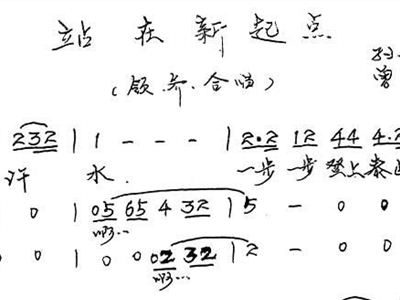 站在新起点
(领齐合唱)
孙
曾
232 | 1 - - - | 2·2 12 44 4·2
汗 水. 一步 一步 登上 泰
0 0 | 05 65 4 32 | 5 - 0 0
啊...
0 0 | 0 0 02 32 | 2 - 0 0
啊...